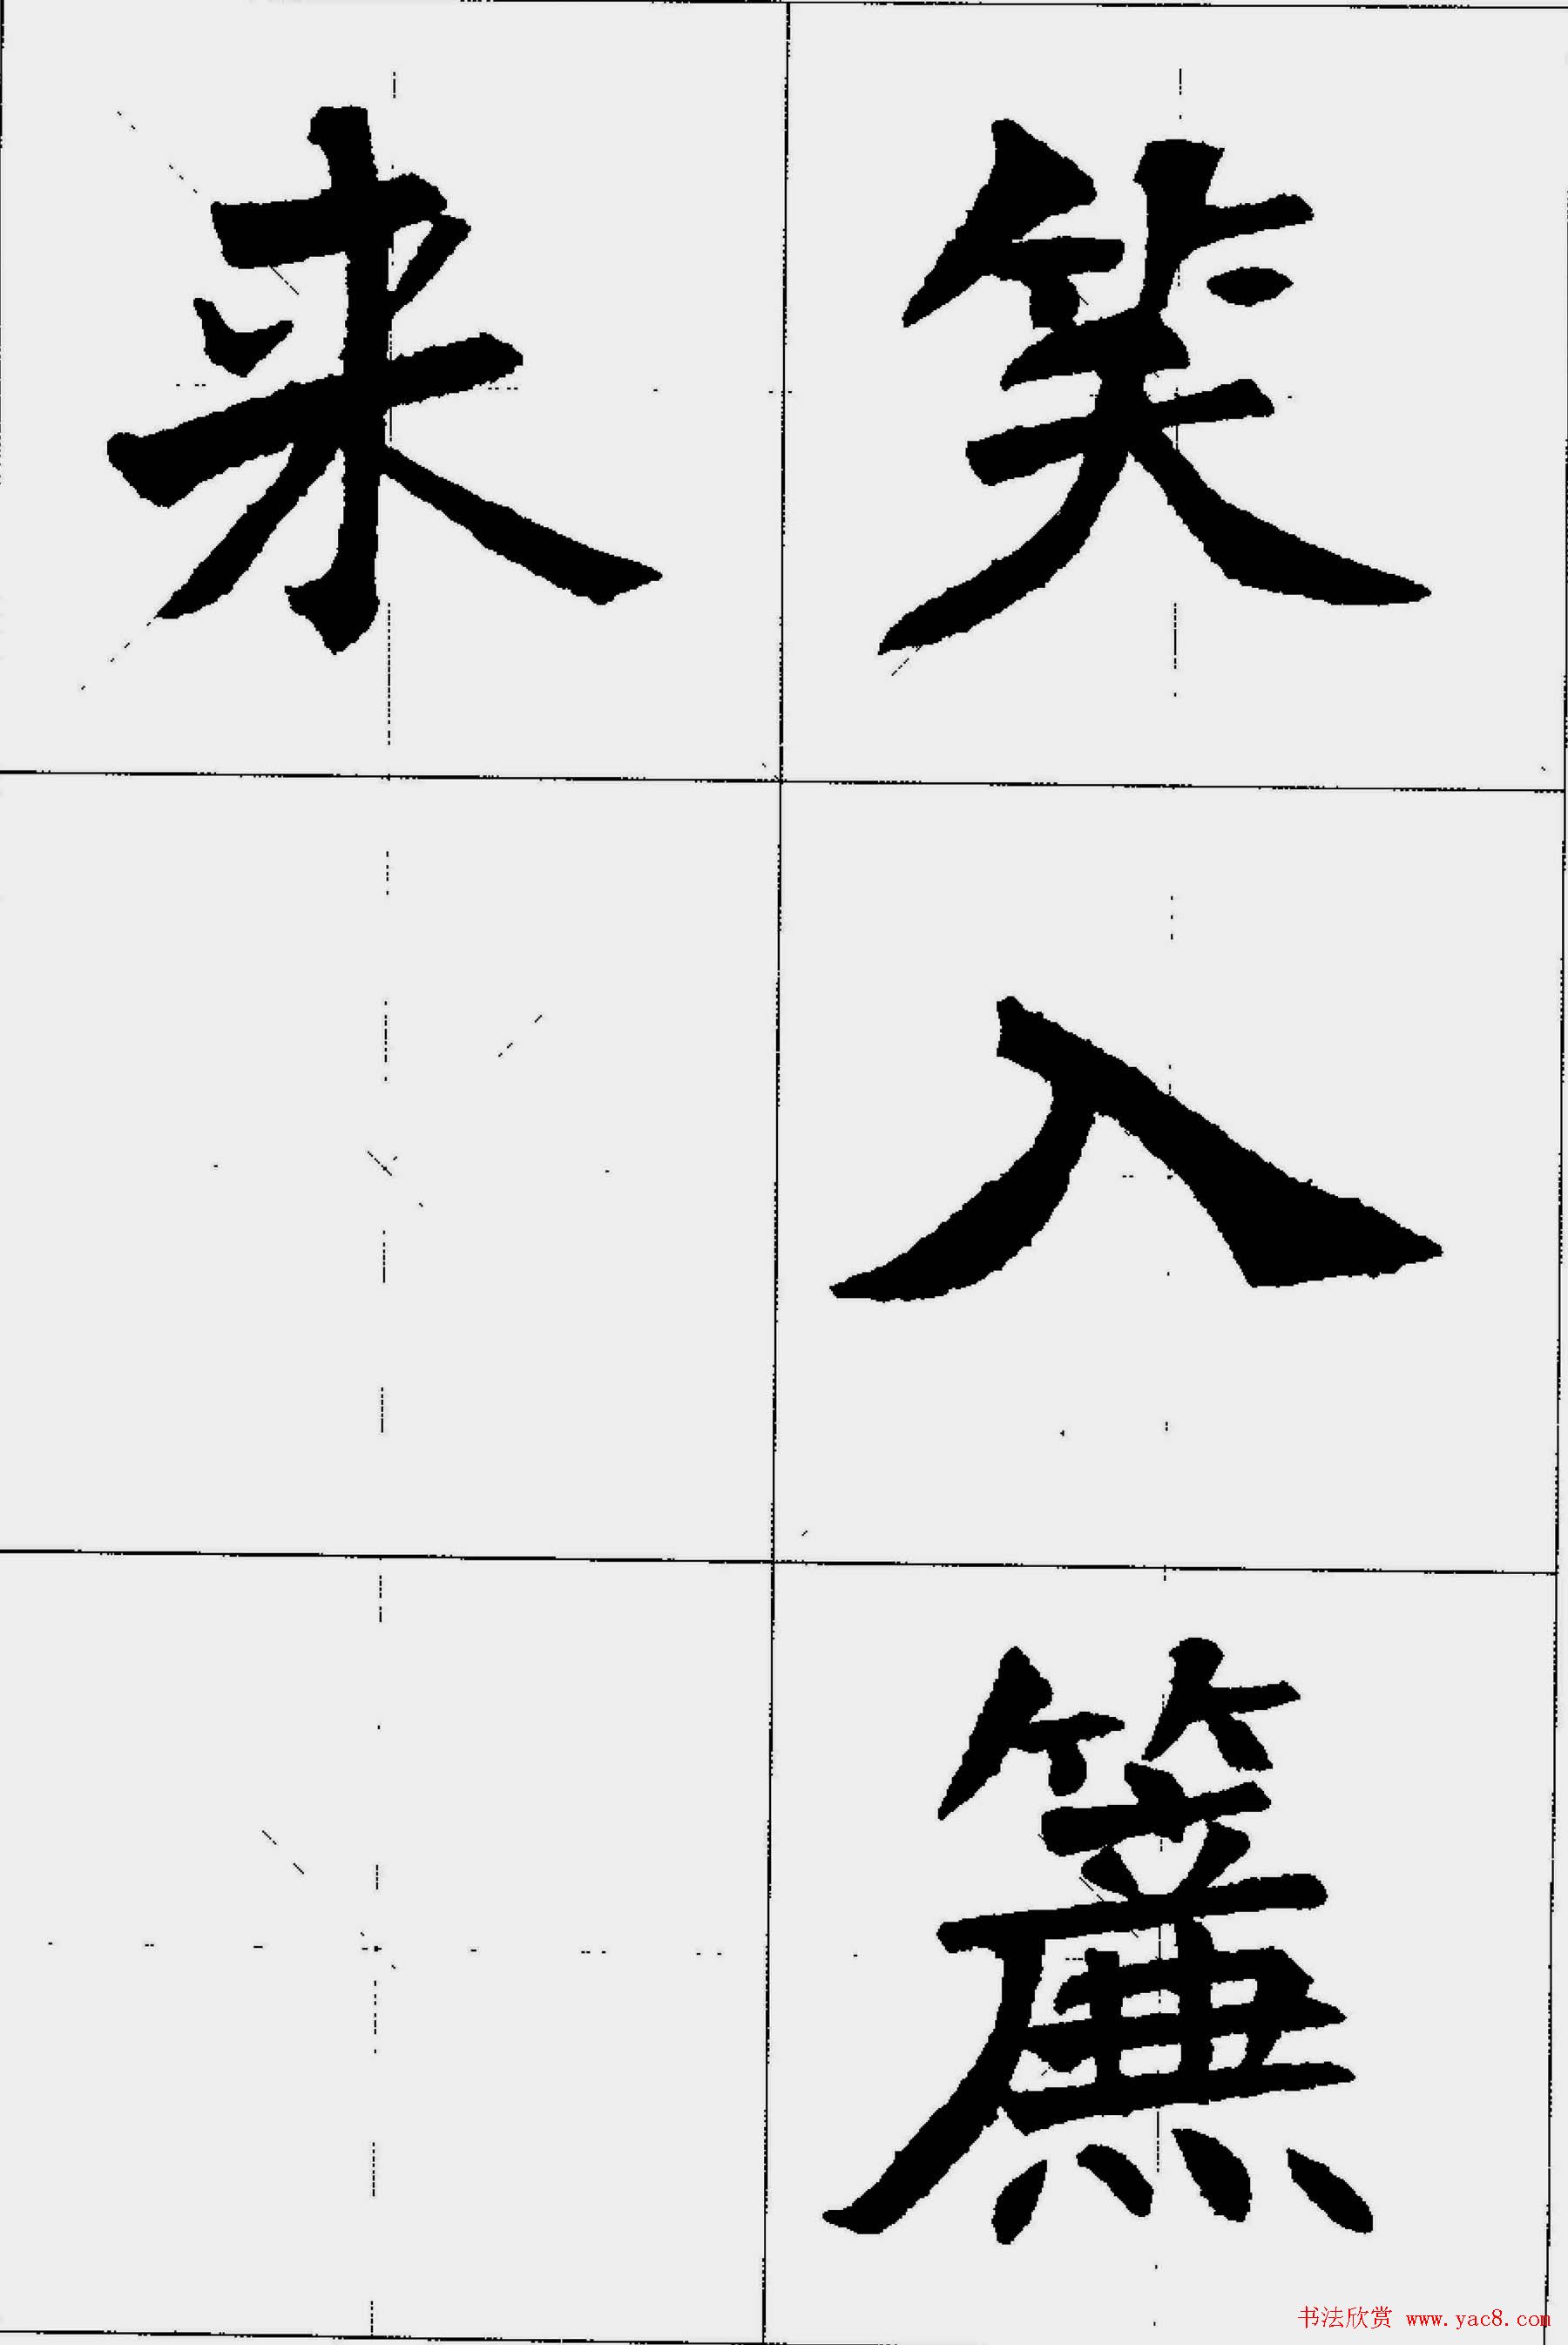 笑入簾
来
书法欣赏 www.yac8.com